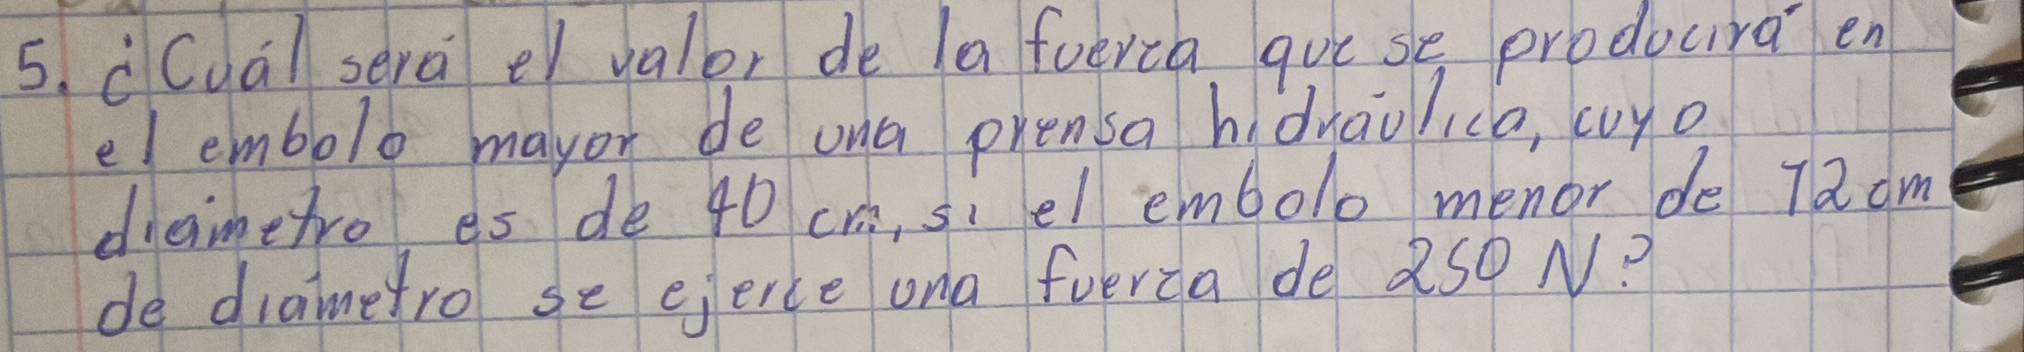 5. ¿Cuál será el valor de la fuerza que se producirá en
el embolo mayor de una prensa hidráulica, cuyo
diámetro es de 40 cm, si el embolo menor de 12 cm
de diámetro se ejerce una fuerza de 250 N?